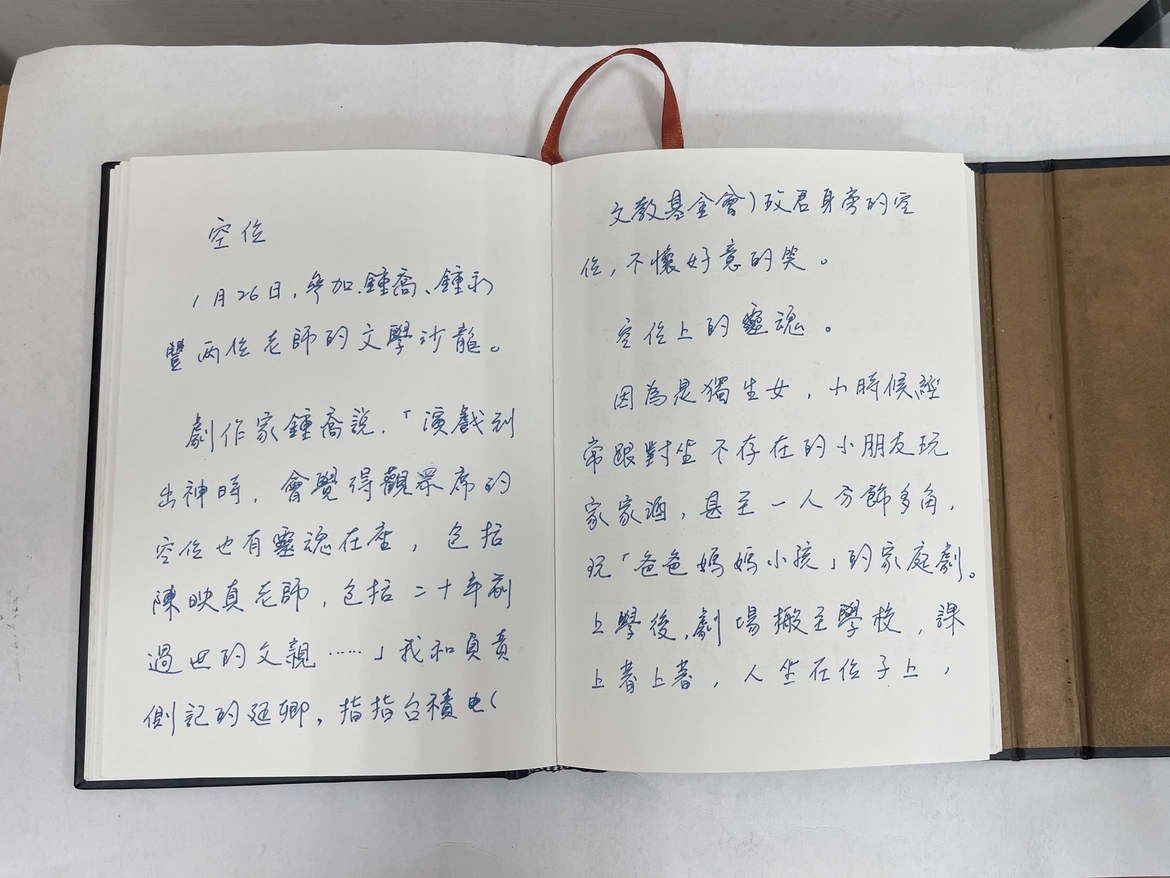 空位
1月26日,參加鍾喬、鍾永
豐兩位老師的文學沙龍。
劇作家鍾喬說,「演戲到
出神時,會覺得觀眾席的
空位也有靈魂在座,包括
陳映真老師,包括二十年前
過世的父親……」我和負責
側記的廷卿,指指台積電(
文教基金會)玫君身旁的空
位,不懷好意的笑。
空位上的靈魂。
因為是獨生女,小時候經
常跟對坐不存在的小朋友玩
家家酒,甚至一人分飾多角,
玩「爸爸媽媽小孩」的家庭劇。
上學後,劇場搬至學校,課
上著上著,人坐在位子上,